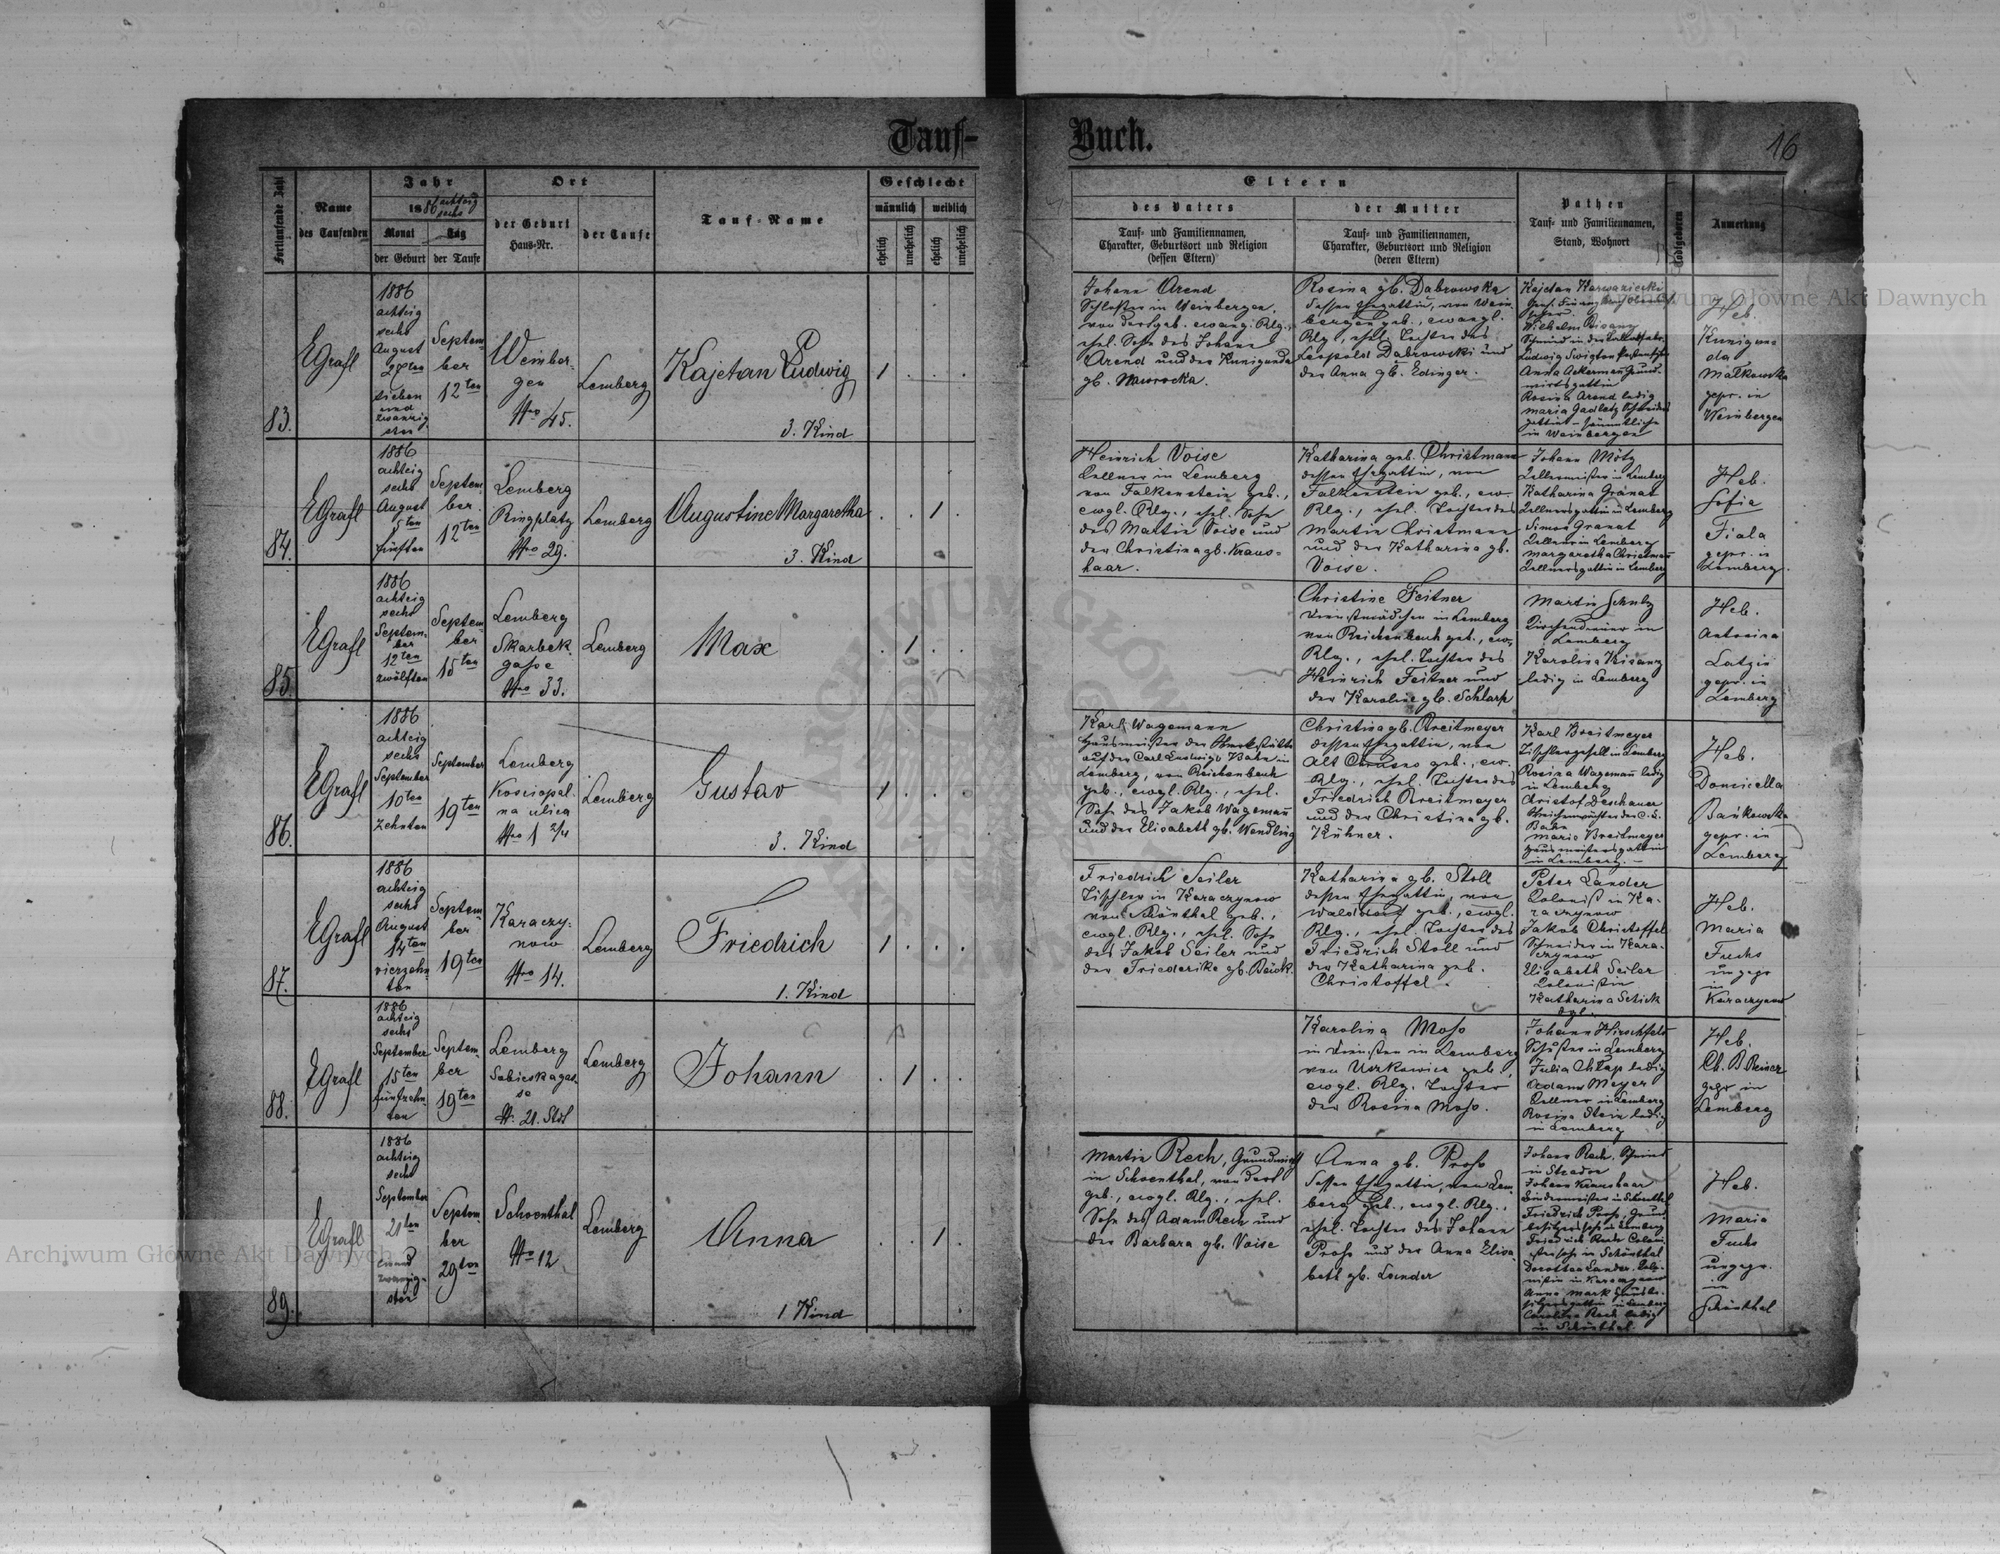 Tauf-
Buch.
16
Fortlaufende Zahl
Name
des Taufenden
Jahr
1886 achtzig
sechs
Monat
Tag
der Geburt
der Taufe
Ort
der Geburt
Haus-Nr.
der Taufe
Tauf-Name
Geschlecht
männlich
weiblich
ehelich
unehelich
ehelich
unehelich
Eltern
des Vaters
Tauf- und Familiennamen,
Charakter, Geburtsort und Religion
(dessen Eltern)
der Mutter
Tauf- und Familiennamen,
Charakter, Geburtsort und Religion
(deren Eltern)
Pathen
Tauf- und Familiennamen,
Stand, Wohnort
Todtgeboren
Anmerkung
83.
EGrafl
1886
achtzig
sechs
August
27ten
sieben
und
zwanzig
sten
Septem-
ber
12ten
Weinber-
gen
Nro 45.
Lemberg
Kajetan Ludwig
3. Kind
1
Johann Arend
Schlosser in Weinbergen,
von dort geb. evang. Rlg.,
ehel. Sohn des Johann
Arend und der Kunigunda
gb. Nawrocka.
Rosina gb. Dabrowska
dessen Ehegattin, von Wein
bergen geb., evangl.
Rlg., ehel. Tochter des
Leopold Dabrowski und
der Anna gb. Edinger.
Wilhelm Bisanz
Anna Ackermann Grund-
wirtsgattin
Rosina Arend ledig
Maria Gadletz Schneiders
gattin - sämmtliche
in Weinbergen
Heb.
Kunigun
da
Małkowska
gepr. in
Weinbergen
84.
EGrafl
1886
achtzig
sechs
August
5ten
fünften
Septem
ber
12ten
Lemberg
Ringplatz
Nro 29.
Lemberg
Augustine Margaretha
3. Kind
1
Heinrich Voise
Kellner in Lemberg
von Falkenstein geb.,
evgl. Rlg., ehel. Sohn
des Martin Voise und
der Christina gb. Kraus-
haar.
Katharina geb. Christmann
dessen Ehegattin, von
Falkenstein geb., ev.
Rlg., ehel. Tochter des
Martin Christmann
und der Katharina gb.
Voise.
Johann Mötz
Kellermeister in Lemberg
Katharina Gränat
Kellnersgattin in Lemberg
Simon Granat
Kellner in Lemberg
Margaretha Christmann
Kellnersgattin in Lemberg
Heb.
Sofia
Fiala
gepr. in
Lemberg.
85.
EGrafl
1886
achtzig
sechs
Septem-
ber
12ten
zwölften
Septem-
ber
15ten
Lemberg
Skarbek-
gasse
Nro 33.
Lemberg
Max
1
Christine Feitner
Dienstmädchen in Lemberg
von Reichenbach geb., ev.
Rlg., ehel. Tochter des
Heinrich Feitner und
der Karoline gb. Schlarp
Martin Schulz
Kirchendiener in
Lemberg
Karolina Bisanz
ledig in Lemberg
Heb.
Antonina
Latzin
gepr. in
Lemberg
86.
EGrafl
1886
achtzig
sechs
September
10ten
zehnten
September
19ten
Lemberg
Kosciopal-
na ulica
Nro 1 2/4
Lemberg
Gustav
3. Kind
1
Karl Wagemann
Hausmeister der Werkstätte
auf der Carl Ludwigs Bahn in
Lemberg, von Reichenbach
geb., evgl. Rlg., ehel.
Sohn des Jakob Wagemann
und der Elisabeth gb. Wendling
Christina gb. Breitmeyer
dessen Ehegattin, von
Alt Chrusno geb., ev.
Rlg., ehel. Tochter des
Friedrich Breitmeyer
und der Christina gb.
Kühner.
Karl Breitmeyer
Tischlergesell in Lemberg
Rosina Wagemann ledig
in Lemberg
Christof Deschauer
Weichenwächter der C. L.
Bahn
Maria Breitmeyer
Hausmeistersgattin
in Lemberg. -
Heb.
Domicella
Bańkowska
gepr. in
Lemberg
87.
EGrafl
1886
achtzig
sechs
August
14ten
vierzehn
ten
Septem-
ber
19ten
Karaczy-
now
Nro 14.
Lemberg
Friedrich
1. Kind
1
Friedrich Seiler
Tischler in Karaczynow
von Schönthal geb.,
evgl. Rlg., ehel. Sohn
des Jakob Seiler und
der Friederike gb. Bäick.
Katharina gb. Stoll
dessen Ehegattin, von
Walddorf geb., evgl.
Rlg., ehel. Tochter des
Friedrich Stoll und
der Katharina geb.
Christoffel.
Peter Lander
Kolonist in Ka-
raczynow
Jakob Christoffel
Schneider in Kara-
czynow
Elisabeth Seiler
Kolonistin
Katharina Schick
dgl.
Heb.
Maria
Fuchs
ungepr
in
Karaczynow
88.
EGrafl
1886
achtzig
sechs
September
15ten
fünfzehn
ten
Septem-
ber
19ten
Lemberg
Sobieskagas-
se
N. 21. Stdt
Lemberg
Johann
1
Karolina Moso
in Diensten in Lemberg
von Uszkowice geb.,
evgl. Rlg. Tochter
der Rosina Moso.
Johann Hirschfeld
Schuster in Lemberg
Julia Chłap ledig
Adam Meyer
Kellner in Lemberg
Rosina Stein ledig
in Lemberg
Heb.
Ch. B. Reiner
gepr in
Lemberg
89.
EGrafl
1886
achtzig
sechs
September
21ten
einund
zwanzig-
sten
Septem-
ber
29ten
Schoenthal
Nro 12
Lemberg
Anna
1 Kind
1
Martin Rech, Grundwirth
in Schoenthal, von dort
geb., evgl. Rlg., ehel.
Sohn des Adam Rech und
der Barbara gb. Voise
Anna gb. Pross
dessen Ehegattin, von Lem-
berg geb., evgl. Rlg.,
ehel. Tochter des Johann
Pross und der Anna Elisa-
beth gb. Lander
Johann Rech, Schmied
in Stradce
Johann Kraushaar
Bindermeister in Schönthal
Friedrich Pross, Grund
besitzerssohn in Lemberg
Friedrich Rech Coloni
stenssohn in Schönthal
Dorothea Lander, Kolo-
nistin in Karaczynow
Anna Mark Hausbe-
sitzersgattin in Lemberg
Carolina Rech ledig
in Schönthal.
Heb.
Maria
Fuchs
ungepr.
in
Schönthal
Archiwum Główne Akt Dawnych
Archiwum Główne Akt Dawnych